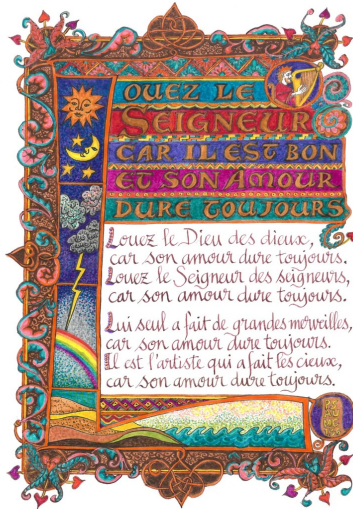 LOUEZ LE
SEIGNEUR
CAR IL EST BON
ET SON AMOUR
DURE TOUJOURS
Louez le Dieu des dieux,
car son amour dure toujours.
Louez le Seigneur des seigneurs,
car son amour dure toujours.
Lui seul a fait de grandes merveilles,
car son amour dure toujours.
Il est l'artiste qui a fait les cieux,
car son amour dure toujours.